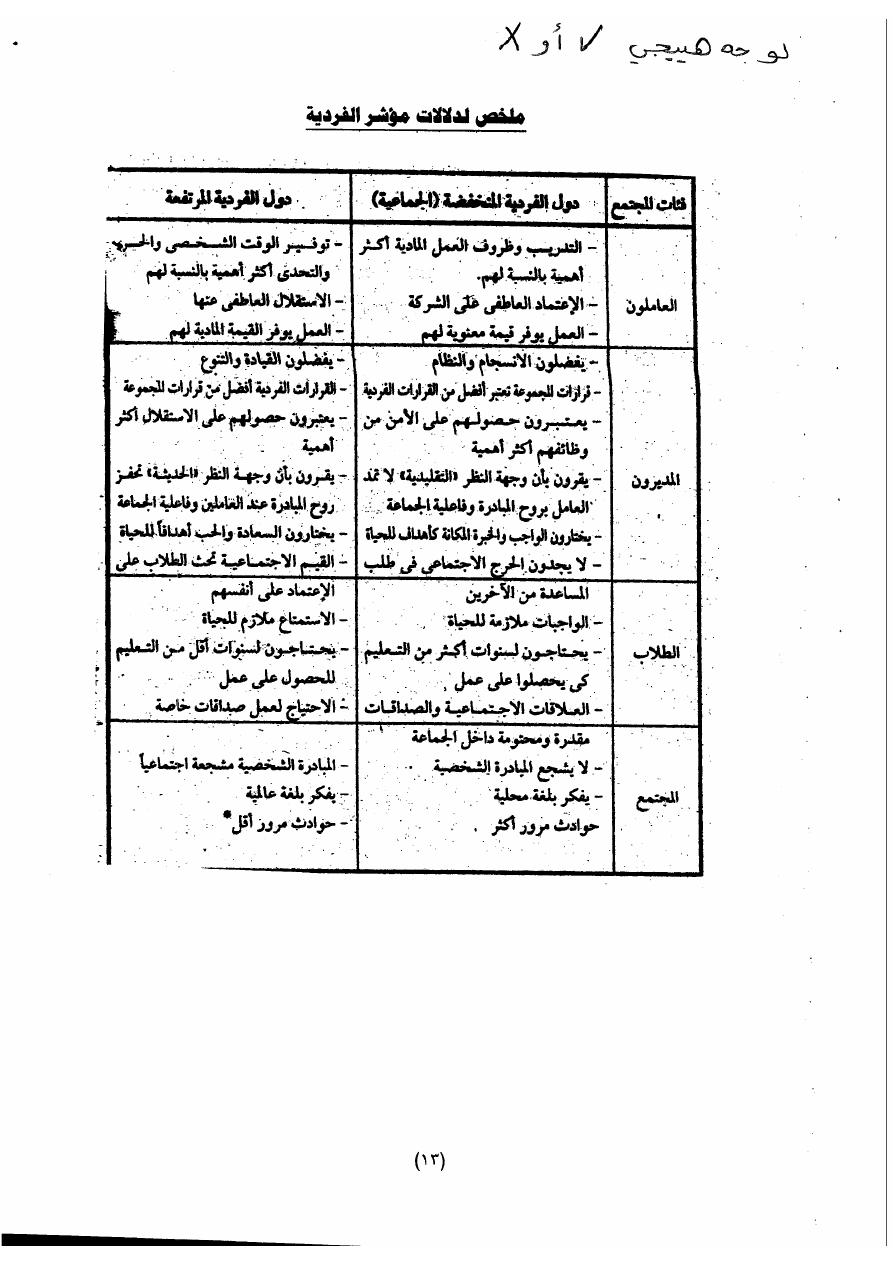 لو جه هييجي √ أو X
ملخص لدلالات مؤشر الفردية
فئات المجتمع
دول الفردية المنخفضة (الجماعية)
دول الفردية المرتفعة
العاملون
- التدريب وظروف العمل المادية أكثر
أهمية بالنسبة لهم.
- الإعتماد العاطفى على الشركة
- العمل يوفر قيمة معنوية لهم
- توفير الوقت الشخصى والحرية
والتحدى أكثر أهمية بالنسبة لهم
- الاستقلال العاطفى عنها
- العمل يوفر القيمة المادية لهم
المديرون
- يفضلون الانسجام والنظام
- قرارات المجموعة تعتبر أفضل من القرارات الفردية
- يعتبرون حصولهم على الأمن من
وظائفهم أكثر أهمية
- يقرون بأن وجهة النظر «التقليدية» لا تمد
العامل بروح المبادرة وفاعلية الجماعة
- يختارون الواجب والخبرة المكانة كأهداف للحياة
- لا يجدون الحرج الاجتماعى فى طلب
- يفضلون القيادة والتنوع
- القرارات الفردية أفضل من قرارات المجموعة
- يعتبرون حصولهم على الاستقلال أكثر
أهمية
- يقرون بأن وجهة النظر «الحديثة» تحفز
روح المبادرة عند العاملين وفاعلية الجماعة
- يختارون السعادة والحب أهدافاً للحياة
- القيم الاجتماعية تحث الطلاب على
الطلاب
المساعدة من الآخرين
- الواجبات ملازمة للحياة
- يحتاجون لسنوات أكثر من التعليم
كى يحصلوا على عمل
- العلاقات الاجتماعية والصداقات
الإعتماد على أنفسهم
- الاستمتاع ملازم للحياة
- يحتاجون لسنوات أقل من التعليم
للحصول على عمل
- الاحتياج لعمل صداقات خاصة
المجتمع
مقدرة ومحتومة داخل الجماعة
- لا يشجع المبادرة الشخصية
- يفكر بلغة محلية
حوادث مرور أكثر
- المبادرة الشخصية مشجعة اجتماعياً
- يفكر بلغة عالمية
- حوادث مرور أقل*
(١٣)